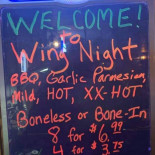 WELCOME!
to
Wing Night
BBQ, Garlic Parmesian,
Mild, HOT, XX-HOT
Boneless or Bone-In
8 for $6.99
4 for $3.75